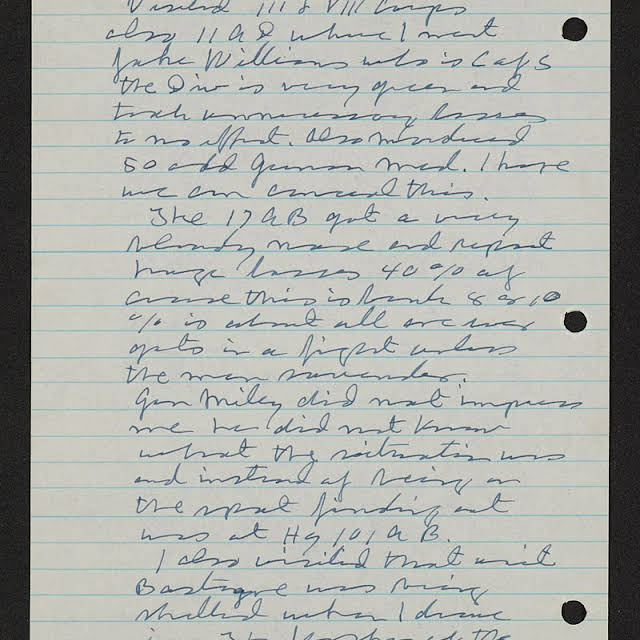 Visited III & VIII Corps
also 11 AD where I met
Jake Williams who is C of S
the Div is very green and
took unnecessary losses
to no effect. Also murdered
50 odd German med. I hope
we can conceal this.
The 17 AB got a very
bloody nose and report
huge losses 40% of
course this is bunk 8 or 10
% is about all one ever
gets in a fight unless
the men surrender.
Gen Miley did not impress
me he did not know
what the situation was
and instead of being on
the spot finding out
was at Hq 101 AB.
I also visited that unit
Bastogne was being
shelled when I drove
in. The